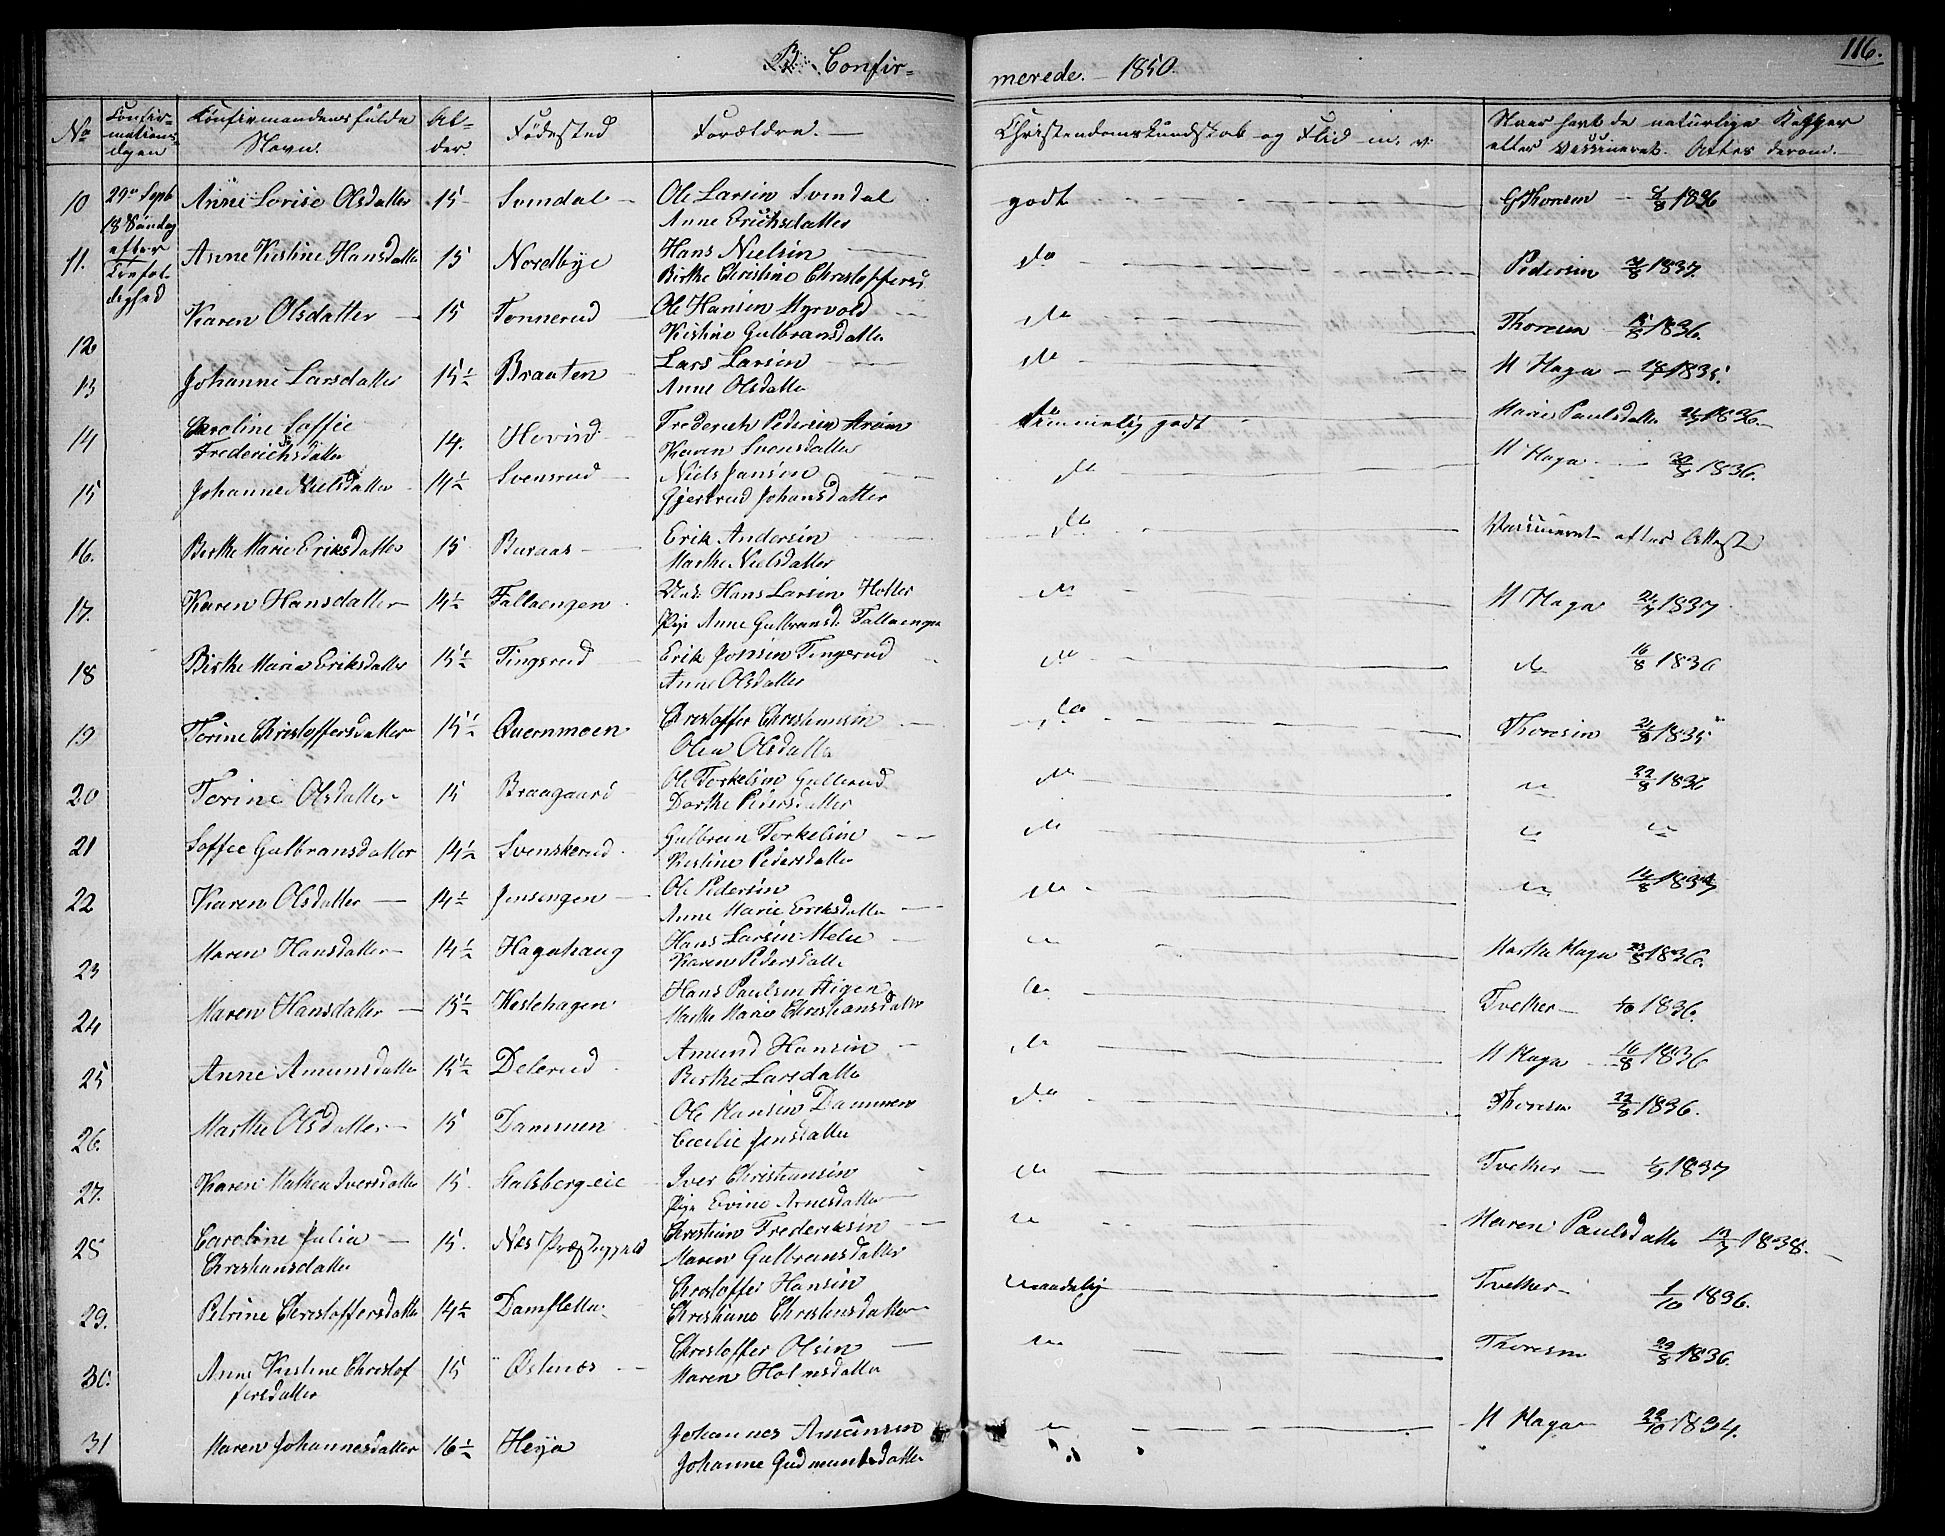 B. Confir-
merede. - 1850.
116.
No
Confir-
mations-
dagen
Confirmandens fulde
Navn.
Al-
der.
Fødested
Forældre.
Christendomskundskab og Flid m. v.
Hvor havt de naturlige Kopper
eller Vaccineret. Attest derom.
29de Septb
18 Søndag
efter
Trefol
dighed
10 Anne Lovise Olsdatter 15 Svendal Ole Larsen Svendal
Anne Erichsdatter godt Thoresen 1836
11. Anne Kirstine Hansdatter 15 Nordbye Hans Nielsen
Birthe Christine Christoffersd do Pedersen 1837.
12 Karen Olsdatter 15 Tonnerud Ole Hansen Myrvold
Kistine Gulbransdatter do Thoresen 1836.
13 Johanne Larsdatter 15½ Braaten Lars Larsen
Anne Olsdatter do M Haga 1835.
14 Caroline Soffie
Frederichsdatter 14. Hovind Frederich Pedersen
Karen Svensdatter temmelig godt Marie Paulsdatter 1836.
15 Johanne Nielsdatter 14½ Svensrud Niels Jansen
Gjertrud Johansdatter do M Haga 1836.
16. Berthe Marie Eriksdatter 15 Buraas Erik Andersen
Marthe Nielsdatter do Vaccineret efter Attest
17. Karen Hansdatter 14½ Fallaengen Hans Larsen Holter
Pige Anne Gulbransd. Fallaengen do M Haga 1837
18 Birthe Maria Eriksdatter 15½ Tingsrud Erik Jonsen Tingsrud
Anne Olsdatter do do 16/8 1836
19 Torine Christoffersdatter 15½ Quernmoen Christoffer Christiansen
Olea Olsdatter do Thoresen 1835
20 Torine Olsdatter 15 Braagaard Ole Torkelsen Gullerud
Dorthe Pedersdatter do do 22/8 1836
21 Soffie Gulbransdatter 14½ Svenskerud Gulbran Torkelsen
Kirstine Pedersdatter do do do
22 Karen Olsdatter 14½ Jensengen Ole Pedersen
Anne Marie Eriksdatter do do
23 Maren Hansdatter 14½ Hagahaug Hans Larsen Melu
Karen Pedersdatte do Marthe Haga 1836.
24 Maren Hansdatter 15½ Keslehagen Hans Paulsen Stigen
Marthe Marie Christiansdatter do Tvether 1836.
25 Anne Amunsdatter 15½ Delerud Amund Hansen
Berthe Larsdatter do M Haga 16/8 1836
26. Marthe Olsdatter 15 Dammen Ole Hansen Dammen
Cecilie Jensdatter do Thoresen 22/8 1836.
27. Karen Mathea Iversdatter 15. Halsbergeie Iver Christiansen
Pige Evine Arnesdatter do Tvether 1837
28 Caroline Julia
Christiansdatter 15. Næs Præstegjeld Christian Frederiksen
Maren Gulbransdatter do Maren Paulsdatter 1838.
29. Petrine Christoffersdatter 14½ Damsletta Christoffer Hansen
Christiane Christensdatter maadelig Tvether 1/10 1836.
30. Anne Kirstine Christof
fersdatter 15 Østenes Christoffer Olsen
Maren Holmsdatter do Thoresen 22/8 1836.
31 Maren Johannesdatter 16½ Heya Johannes Amunsen
Johanne Gudmundsdatter do M Haga 1834.